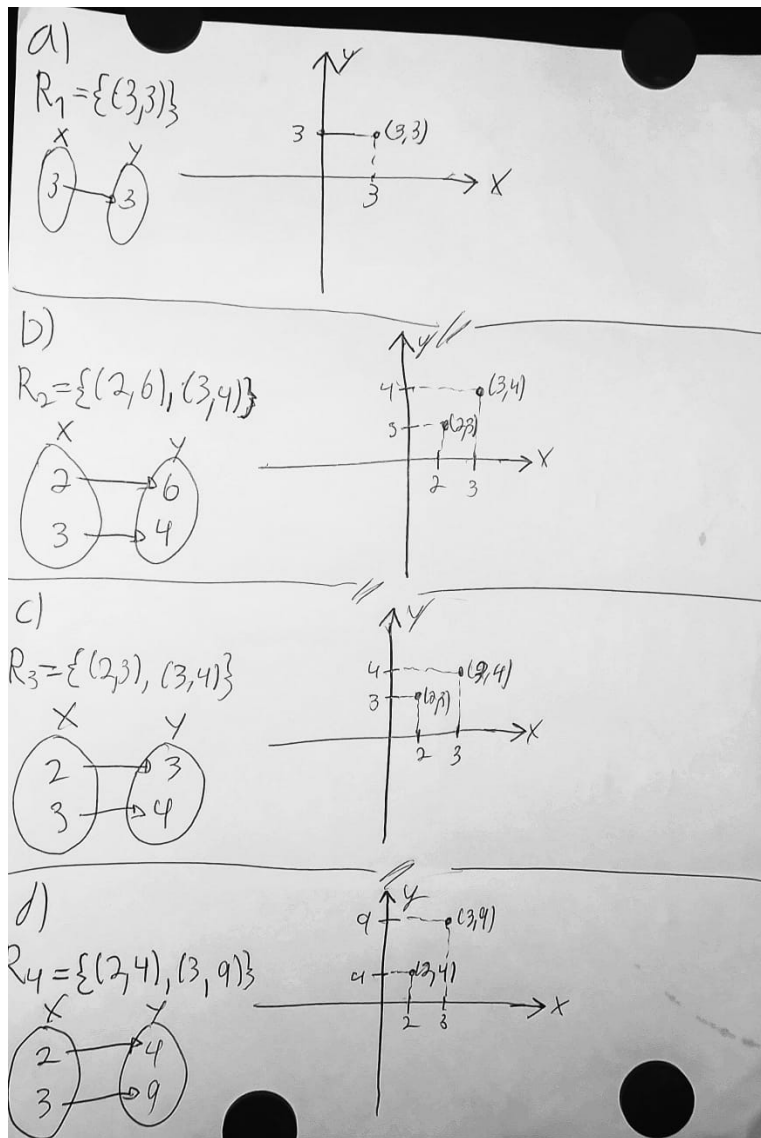 a)
R₁={(3,3)}
X Y
3 3
Y
3 (3,3)
3 X
b)
R₂={(2,6),(3,4)}
X Y
2 6
3 4
Y
4 (3,4)
3 (2,3)
2 3 X
c)
R₃={(2,3),(3,4)}
X Y
2 3
3 4
Y
4 (3,4)
3 (2,3)
2 3 X
d)
R₄={(2,4),(3,9)}
X Y
2 4
3 9
Y
9 (3,9)
4 (2,4)
2 3 X